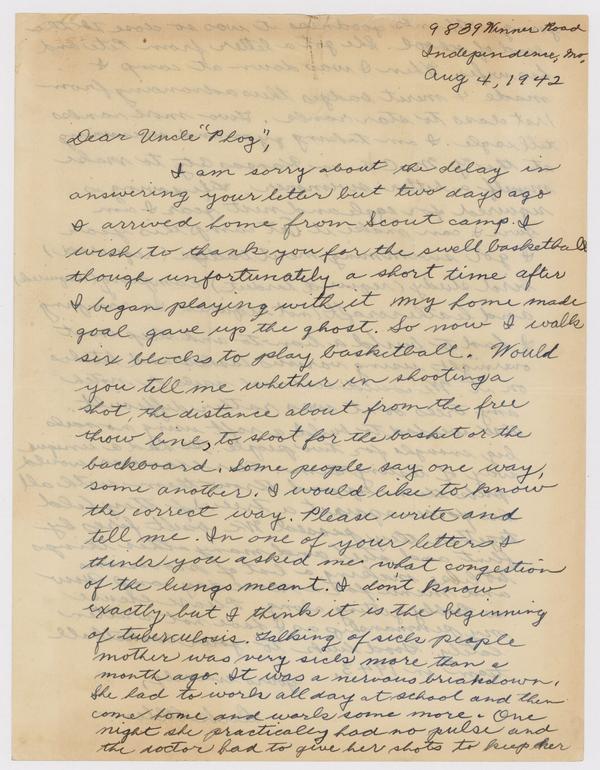 9839 Winner Road
Independence, Mo,
Aug 4, 1942
Dear Uncle "Phog",
I am sorry about the delay in
answering your letter but two days ago
I arrived home from Scout camp. I
wish to thank you for the swell basketball
though unfortunately a short time after
I began playing with it my home made
goal gave up the ghost. So now I walk
six blocks to play basketball. Would
you tell me whether in shooting a
shot, the distance about from the free
throw line, to shoot for the basket or the
backboard. Some people say one way,
some another. I would like to know
the correct way. Please write and
tell me. In one of your letters I
think you asked me what congestion
of the lungs meant. I don't know
exactly but I think it is the beginning
of tuberculosis. Talking of sick people
mother was very sick more than a
month ago. It was a nervous breakdown.
She had to work all day at school and then
come home and work some more. One
night she practically had no pulse and
the doctor had to give her shots to keep her